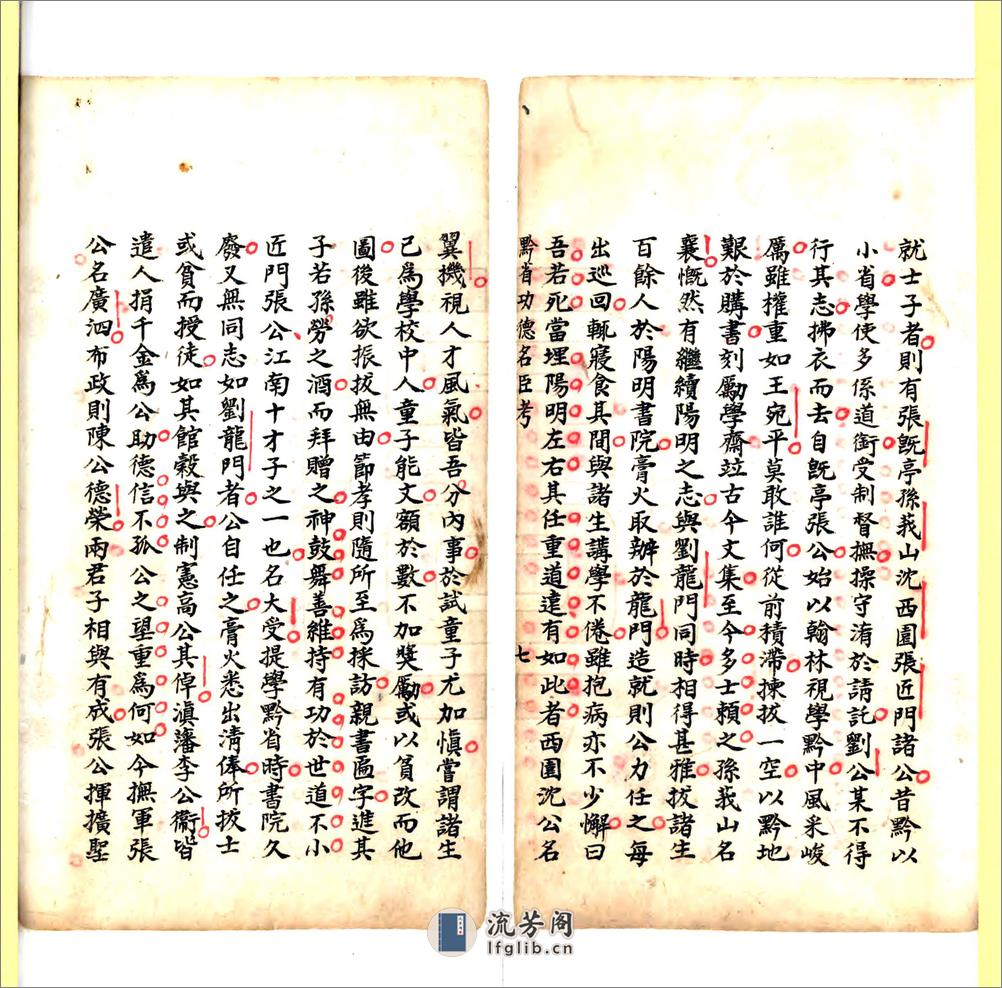 就士子者則有張旣亭孫莪山沈西園張匠門諸公昔黔以
小省學使多係道銜受制督撫操守淆於請託劉公某不得
行其志拂衣而去自旣亭張公始以翰林視學黔中風采峻
厲雖權重如王宛平莫敢誰何從前積滯揀拔一空以黔地
艱於購書刻勵學齋竝古今文集至今多士賴之孫莪山名
襄慨然有繼續陽明之志與劉龍門同時相得甚雅拔諸生
百餘人於陽明書院膏火取辦於龍門造就則公力任之每
出巡回輒寢食其間與諸生講學不倦雖抱病亦不少懈曰
吾若死當埋陽明左右其任重道遠有如此者西園沈公名
黔省功德名臣考 七
翼機視人才風氣皆吾分內事於試童子尤加慎嘗謂諸生
已為學校中人童子能文額於數不加獎勵或以貧改而他
圖後雖欲振拔無由節孝則隨所至為採訪親書匾字進其
子若孫勞之酒而拜贈之神鼓舞善維持有功於世道不小
匠門張公江南十才子之一也名大受提學黔省時書院久
廢又無同志如劉龍門者公自任之膏火悉出清俸所拔士
或貧而授徒如其館穀與之制憲高公其倬滇藩李公衞皆
遣人捐千金為公助德信不孤公之望重為何如今撫軍張
公名廣泗布政則陳公德榮兩君子相與有成張公揮擴聖
流芳阁
lfglib.cn